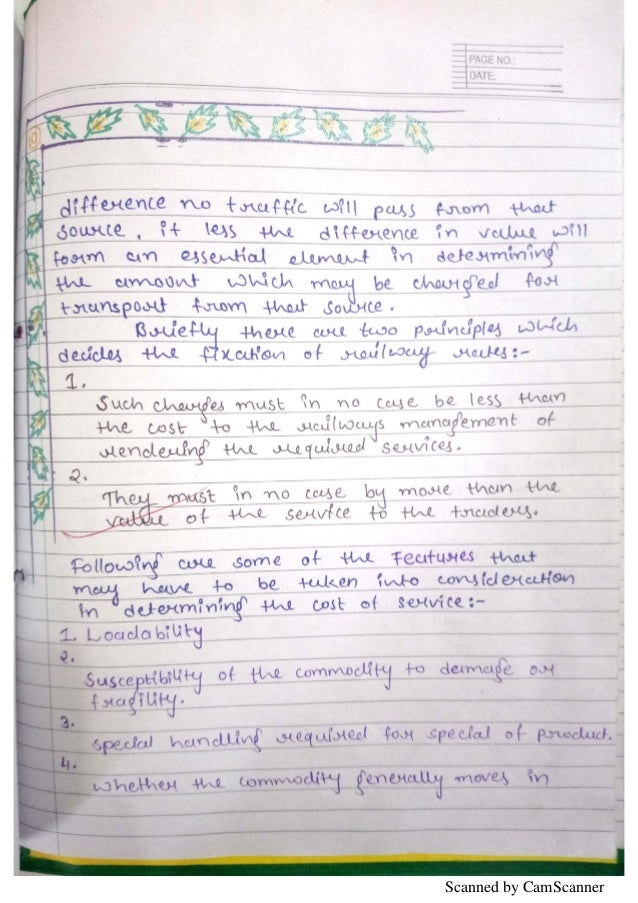 PAGE NO.:
DATE:
difference no traffic will pass from that
source, it less the difference in value will
form an essential element in determining
the amoont which may be charged for
transport from that source.
Briefly there are two principles which
decides the fixation of railway rates:-
1.
Such charges must in no case be less than
the cost to the railways management of
rendering the required services.
2.
They must in no case by more than the
value of the service to the traders.
Following are some of the Features that
may have to be taken into consideration
in determining the cost of service:-
1. Loadability
2.
Susceptibility of the commodity to damage or
fragility.
3.
special handling required for special of product.
4.
whether the commodity generally moves in
Scanned by CamScanner